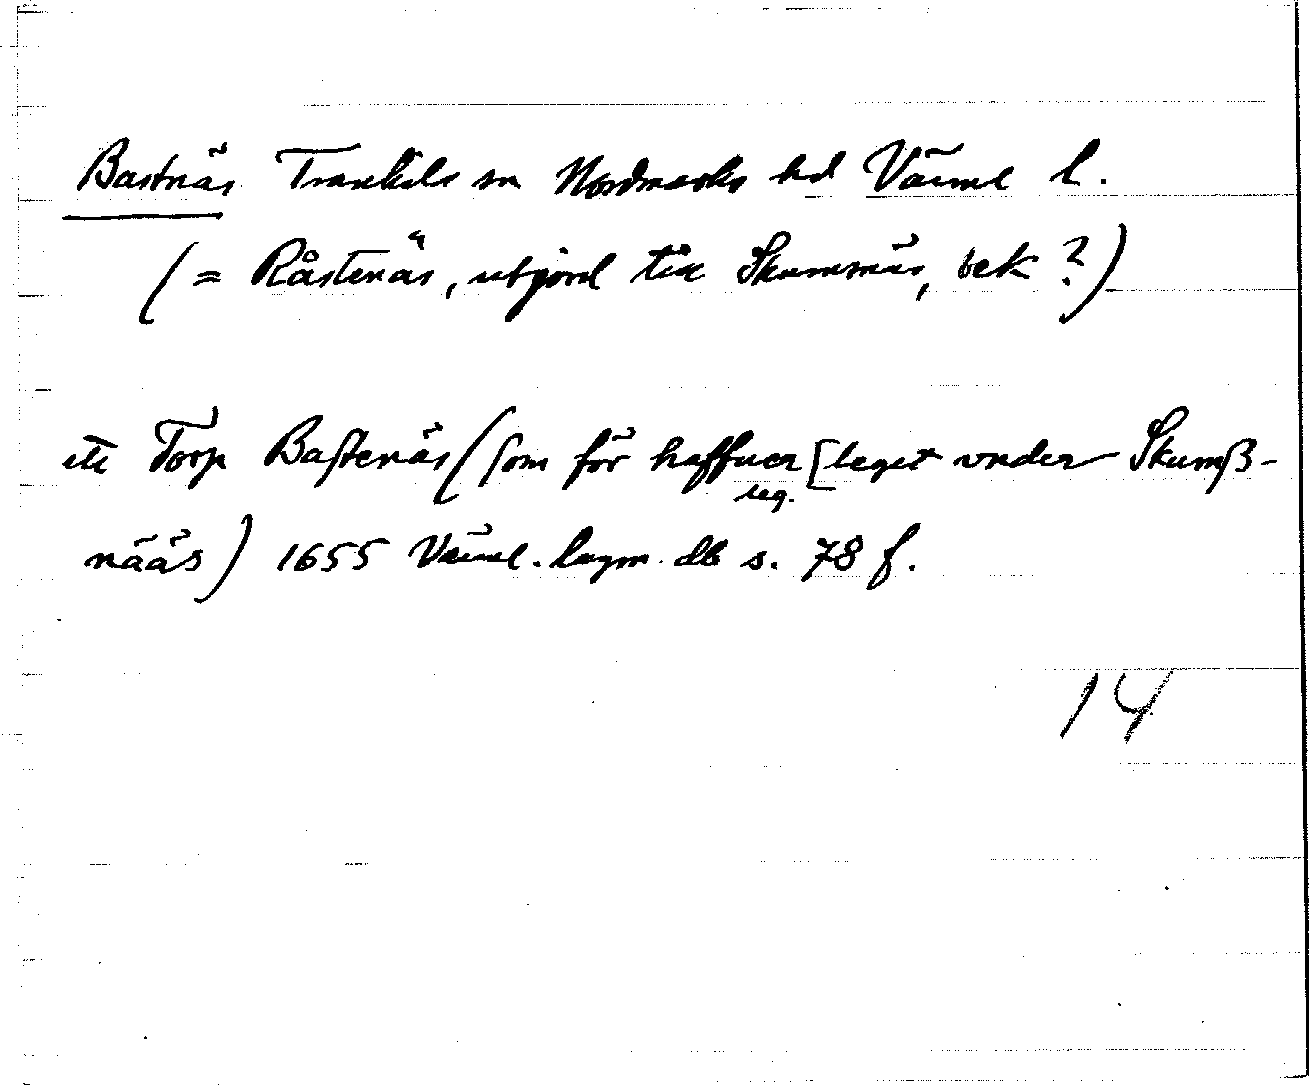 Bastnäs Trankils sn Nordmarks hd Värml l.
(= Råstenäs, utjord till Skummnäs, bek ?)
ett Torp Baſtenäs (ſom för haffuer [leget vnder Skumß-
seg.
nääs) 1655 Värml. lagm. db s. 78 f.
14